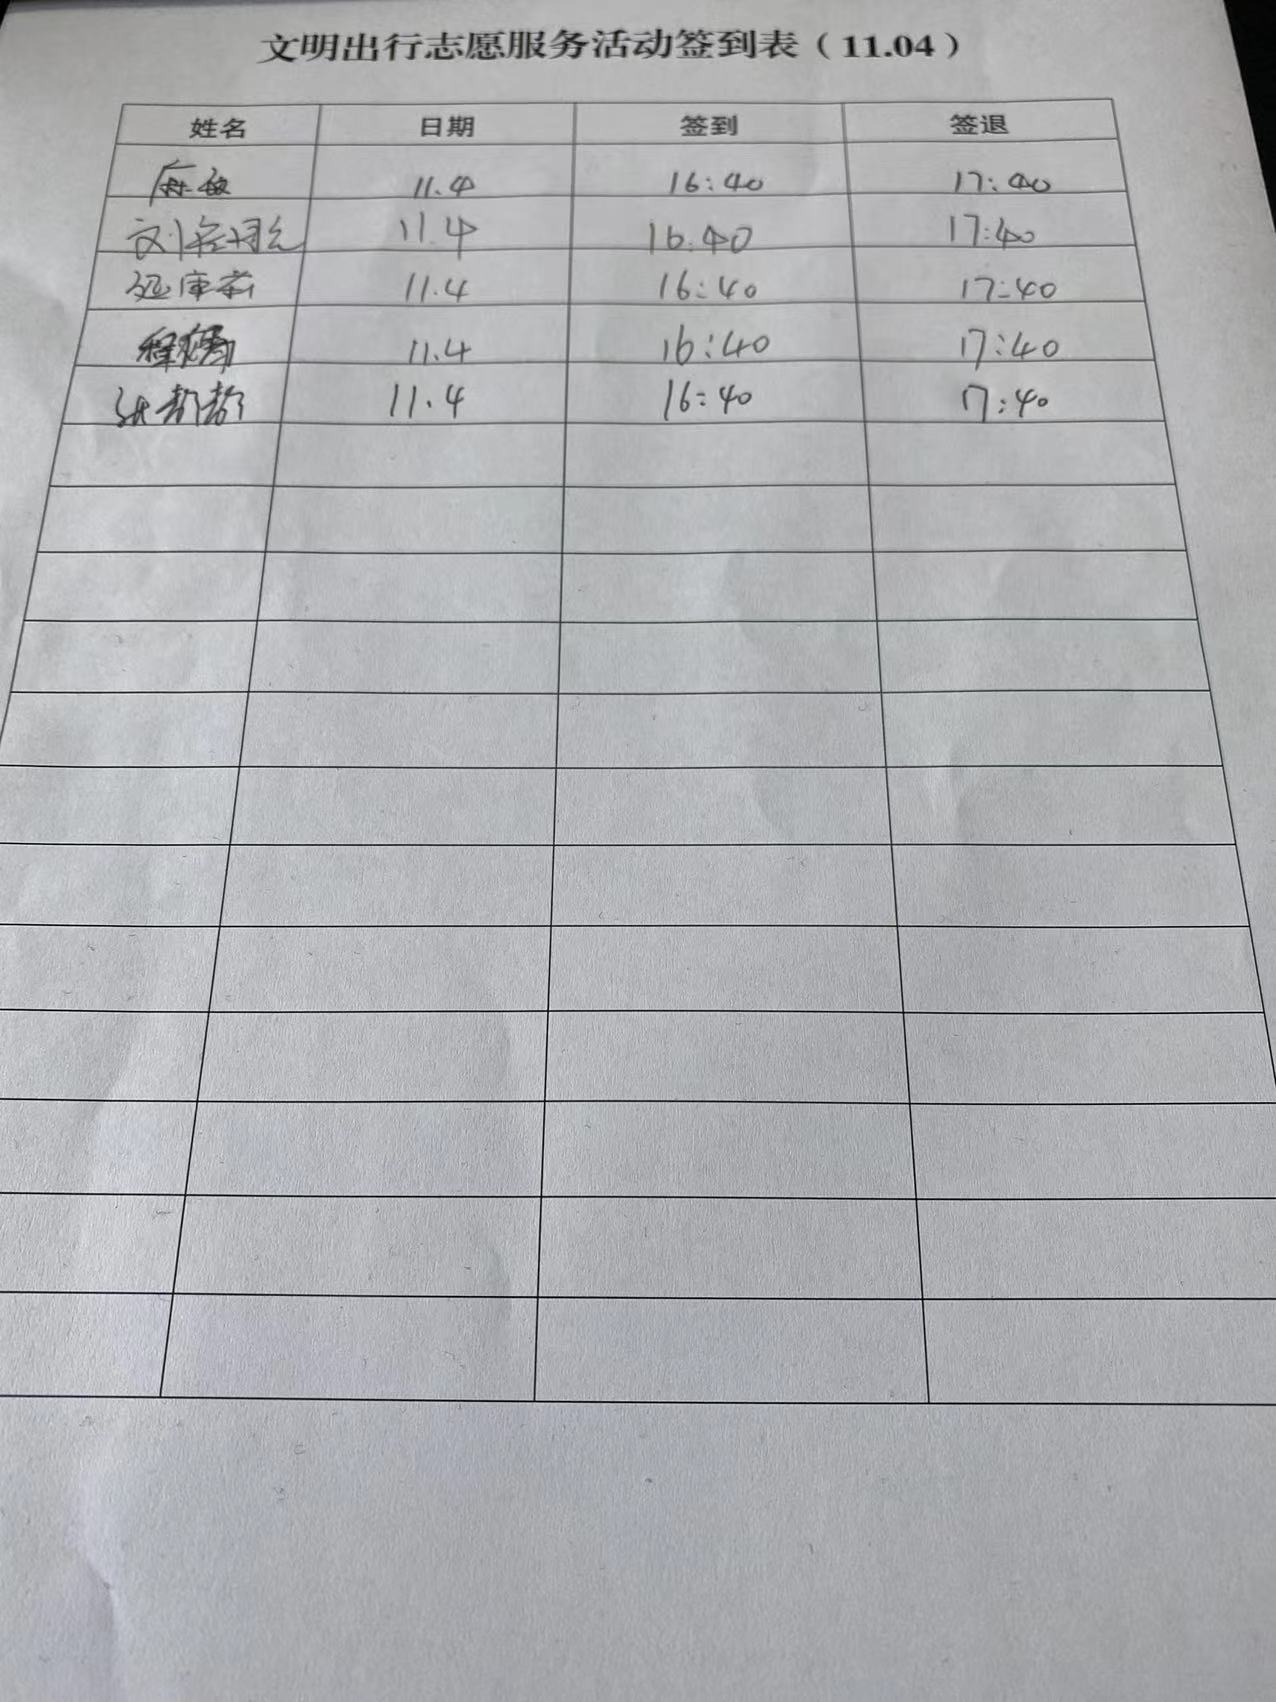 文明出行志愿服务活动签到表（11.04）
姓名 日期 签到 签退
麻敏 11.4 16:40 17:40
刘 11.4 16:40 17:40
11.4 16:40 17:40
程 11.4 16:40 17:40
张 11.4 16:40 17:40